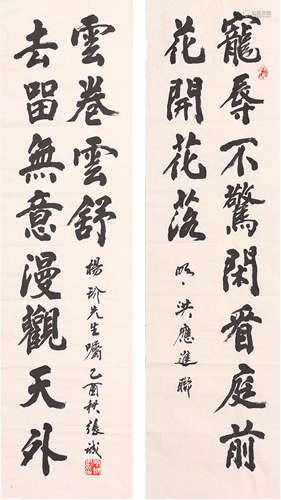 寵辱不驚閑看庭前
花開花落
明、洪應進聯
去留無意漫觀天外
雲卷雲舒
楊玠先生囑乙酉秋張誠